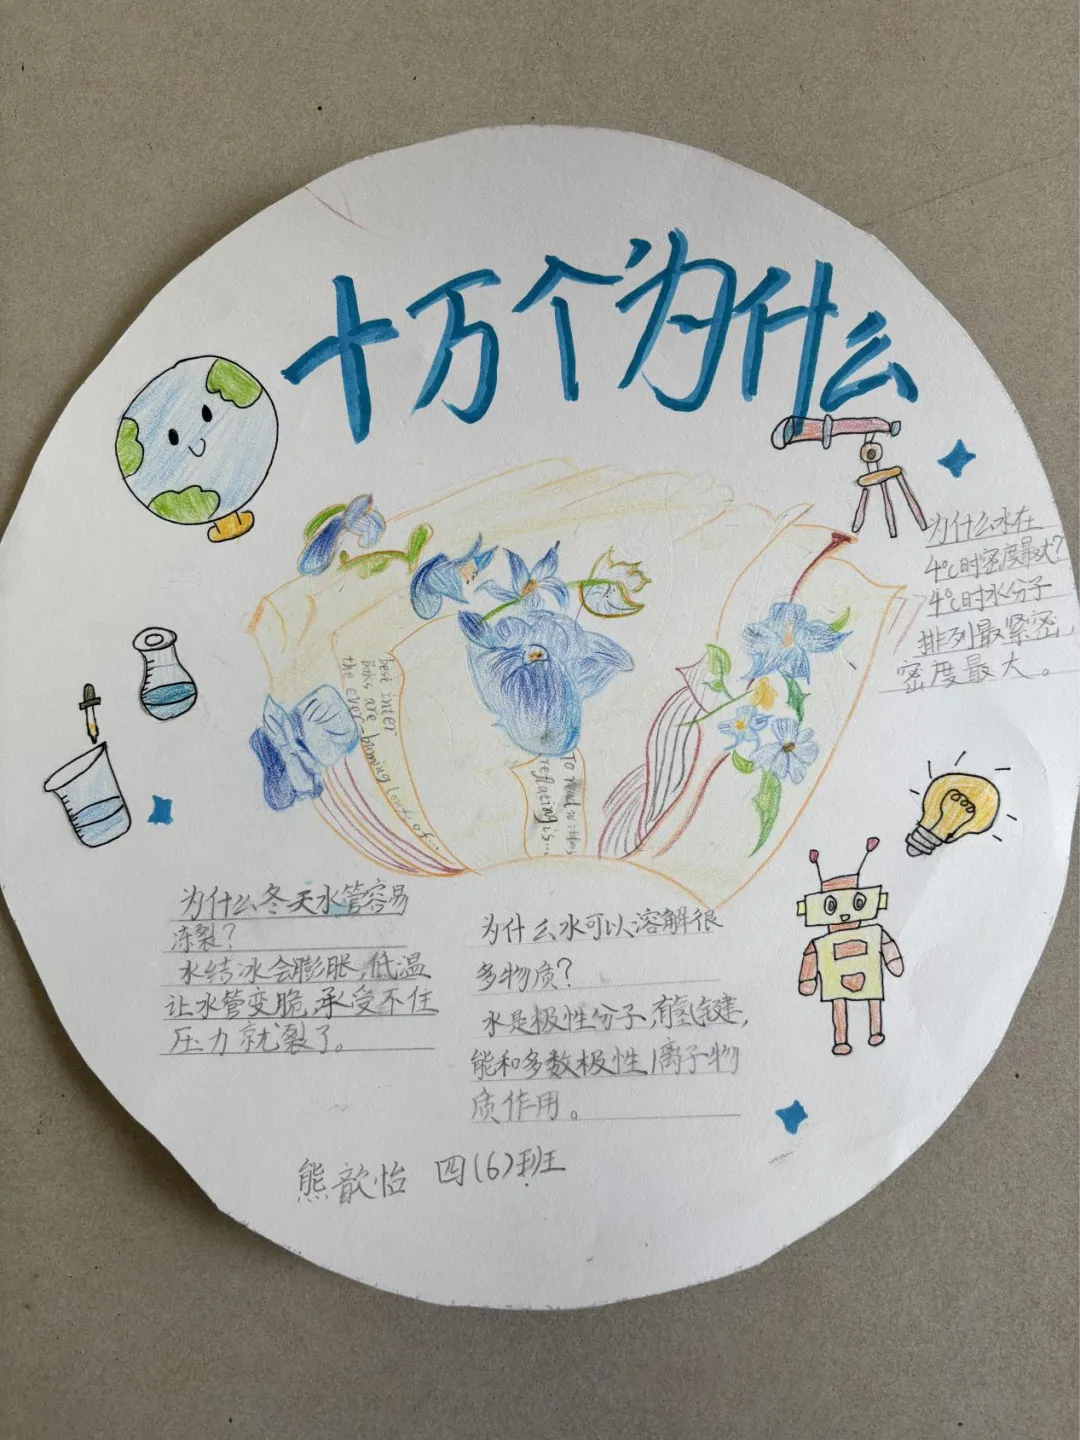 十万个为什么
为什么水在
4℃时密度最大?
4℃时水分子
排列最紧密,
密度最大。
best inter
books are
the ever
burning
To read
reflating is...
为什么冬天水管容易
冻裂?
水结冰会膨胀,低温
让水管变脆,承受不住
压力就裂了。
为什么水可以溶解很
多物质?
水是极性分子,有氢键,
能和多数极性,离子物
质作用。
熊歆怡 四(6)班